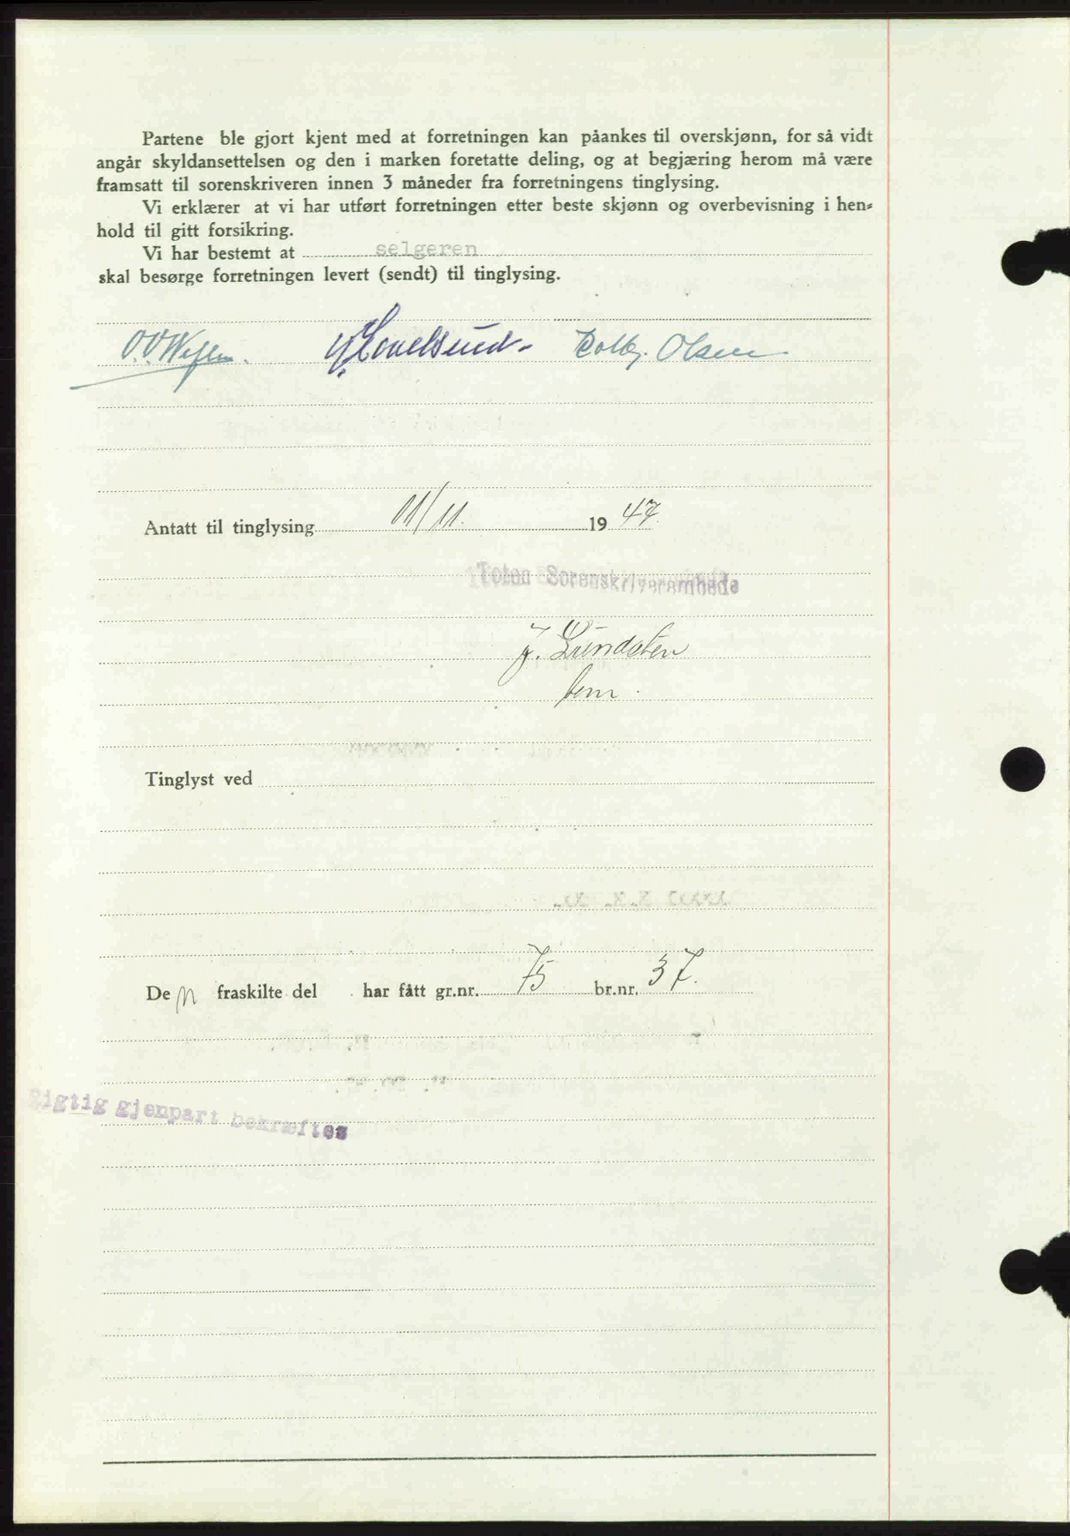 Partene ble gjort kjent med at forretningen kan påankes til overskjønn, for så vidt
angår skyldansettelsen og den i marken foretatte deling, og at begjæring herom må være
framsatt til sorenskriveren innen 3 måneder fra forretningens tinglysing.
Vi erklærer at vi har utført forretningen etter beste skjønn og overbevisning i hen-
hold til gitt forsikring.
Vi har bestemt at selgeren
skal besørge forretningen levert (sendt) til tinglysing.
Olsen
Antatt til tinglysing 11/11. 1947
Toten Sorenskriverembede
J. Lundsten
Tinglyst ved
Den fraskilte del har fått gr.nr. 75 br.nr. 37.
Rigtig gjenpart bekræftes